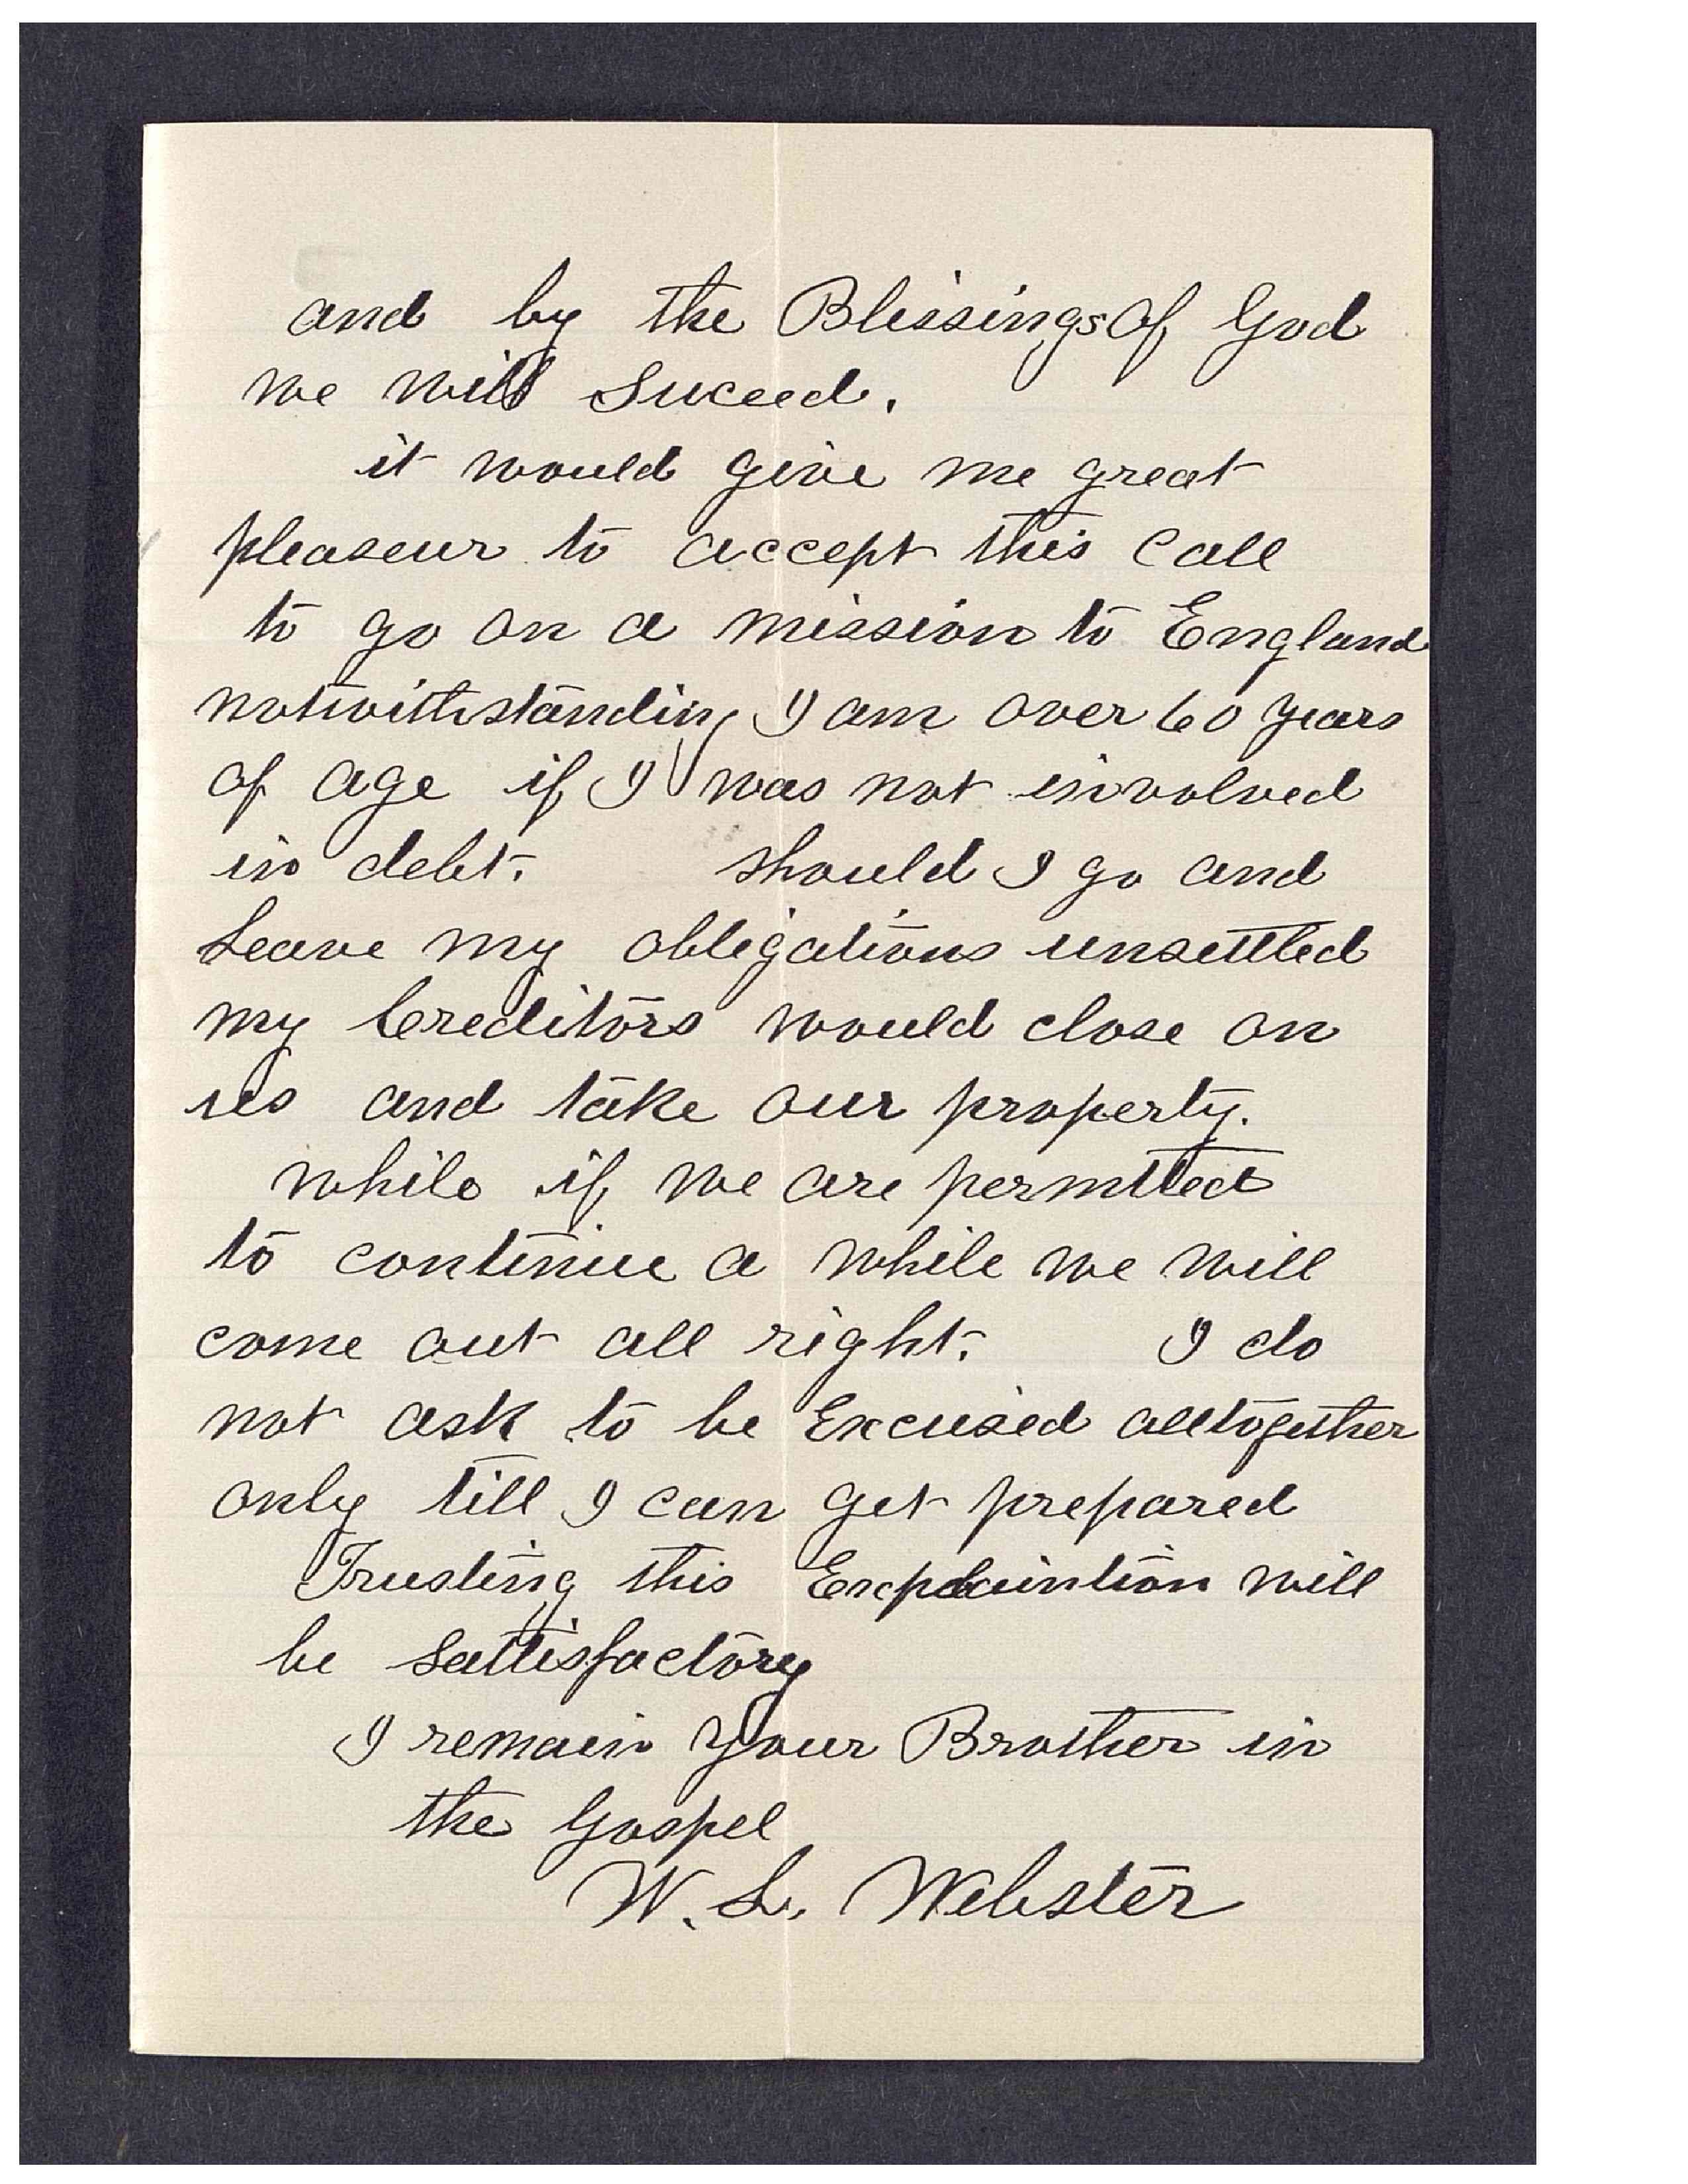 and by the Blessings of God
we will Suceed.
it would give me great
pleaseur to accept this call
to go on a mission to England
notwithstanding I am over 60 years
of age if I was not involved
in debt. should I go and
Leave my obligations unsettled
my Creditors would close on
us and take our property.
while if we are permitted
to continue a while we will
come out all right. I do
not ask to be Excused alltogether
only till I can get prepared
Trusting this Explaintion will
be sattisfactory
I remain your Brother in
the Gospel
W. L. Webster